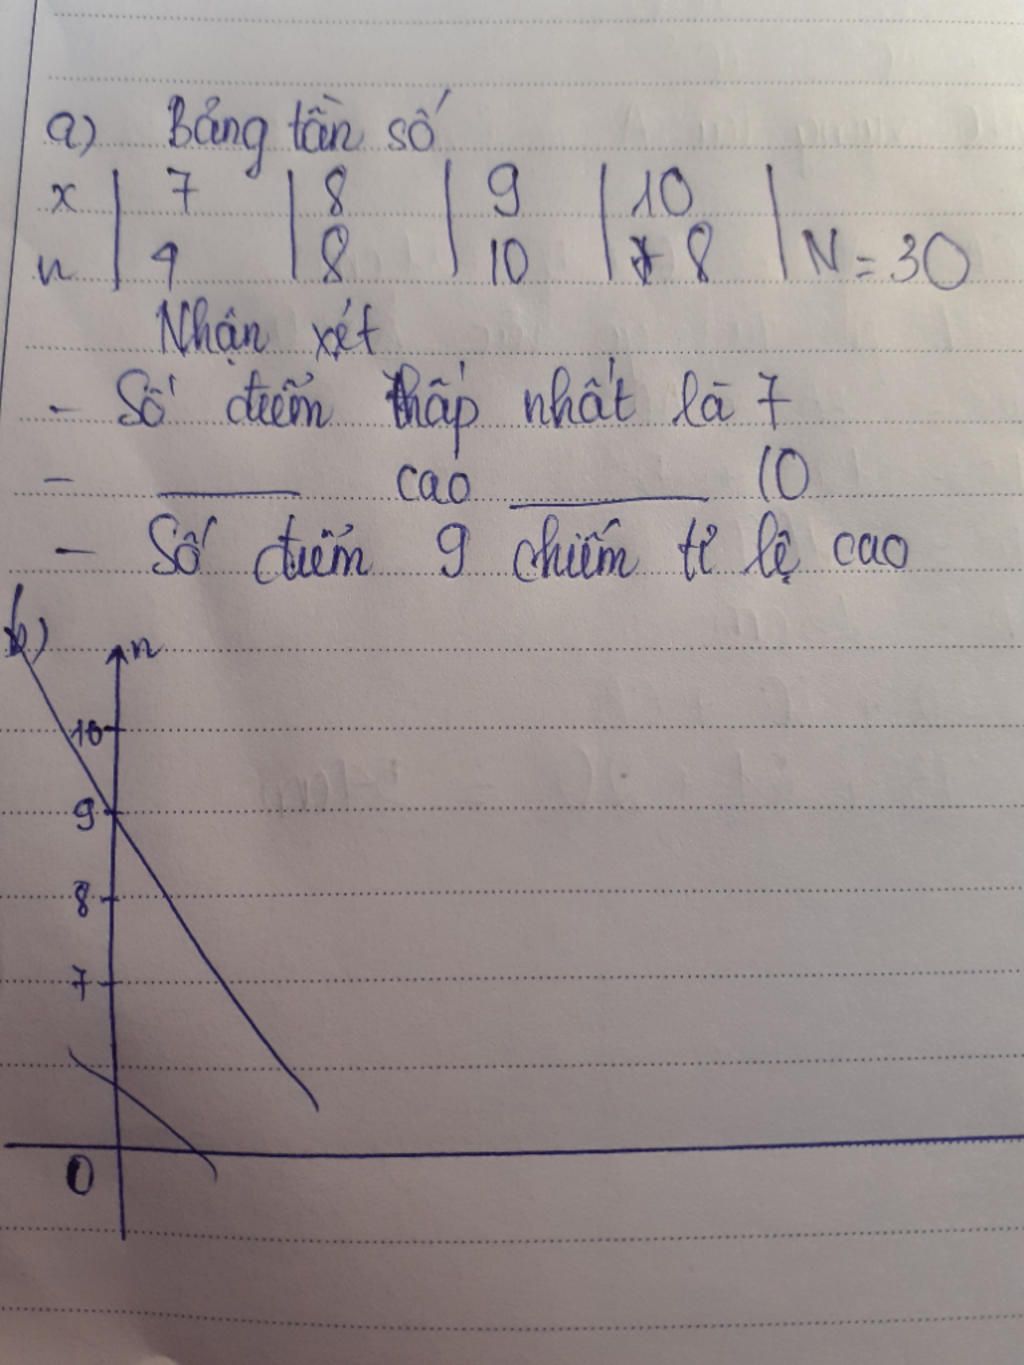 a) Bảng tần số
x | 7 | 8 | 9 | 10 |
n | 4 | 8 | 10 | 8 | N = 30
Nhận xét
- Số điểm thấp nhất là 7
- ——— cao ——— 10
- Số điểm 9 chiếm tỉ lệ cao
b)
n
10
9
8
7
0